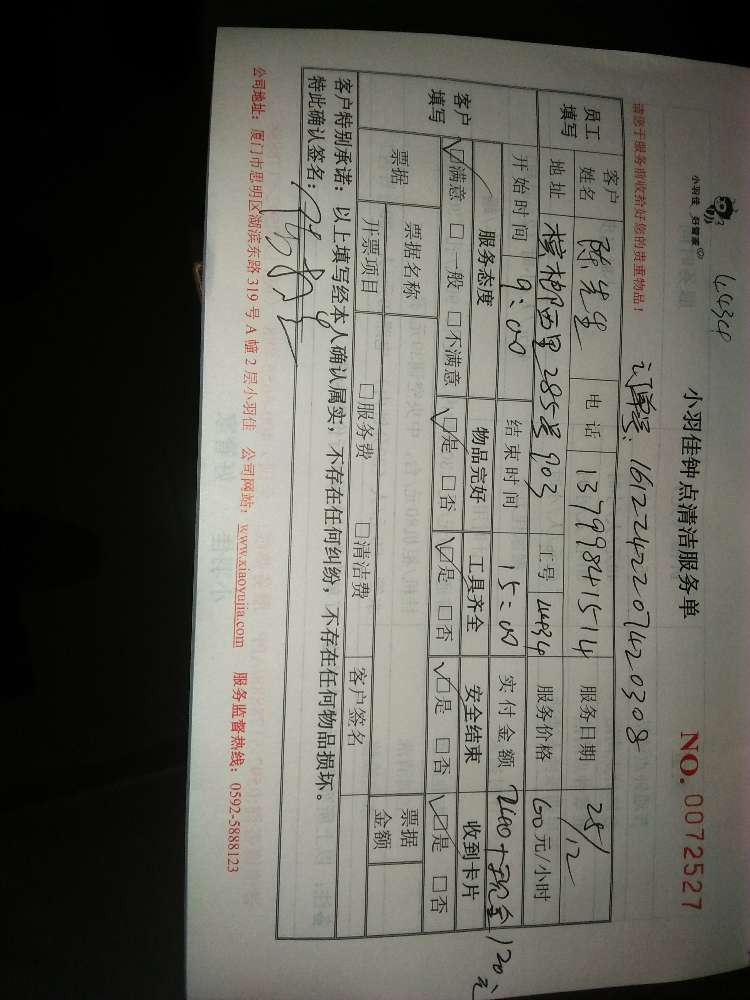 4434
小羽佳 好管家
小羽佳钟点清洁服务单
NO. 0072527
请您于服务前收拾好您的贵重物品！
订单号：1612242207420308
员工填写
客户姓名 陈先生 电话 13799841514 服务日期 28/12
地址 槟榔西里285号903 工号 4434 服务价格 60元/小时
开始时间 9:00 结束时间 15:00 实付金额 240+现金120元
客户填写
服务态度 物品完好 工具齐全 安全结束 收到卡片
☑满意 □一般 □不满意 ☑是 □否 ☑是 □否 ☑是 □否 ☑是 □否
票据 票据名称 票据金额
开票项目 □服务费 □清洁费 客户签名
客户特别承诺：以上填写经本人确认属实，不存在任何纠纷，不存在任何物品损坏。
特此确认签名：
公司地址：厦门市思明区湖滨东路319号A幢2层小羽佳 公司网站：www.xiaoyujia.com 服务监督热线：0592-5888123